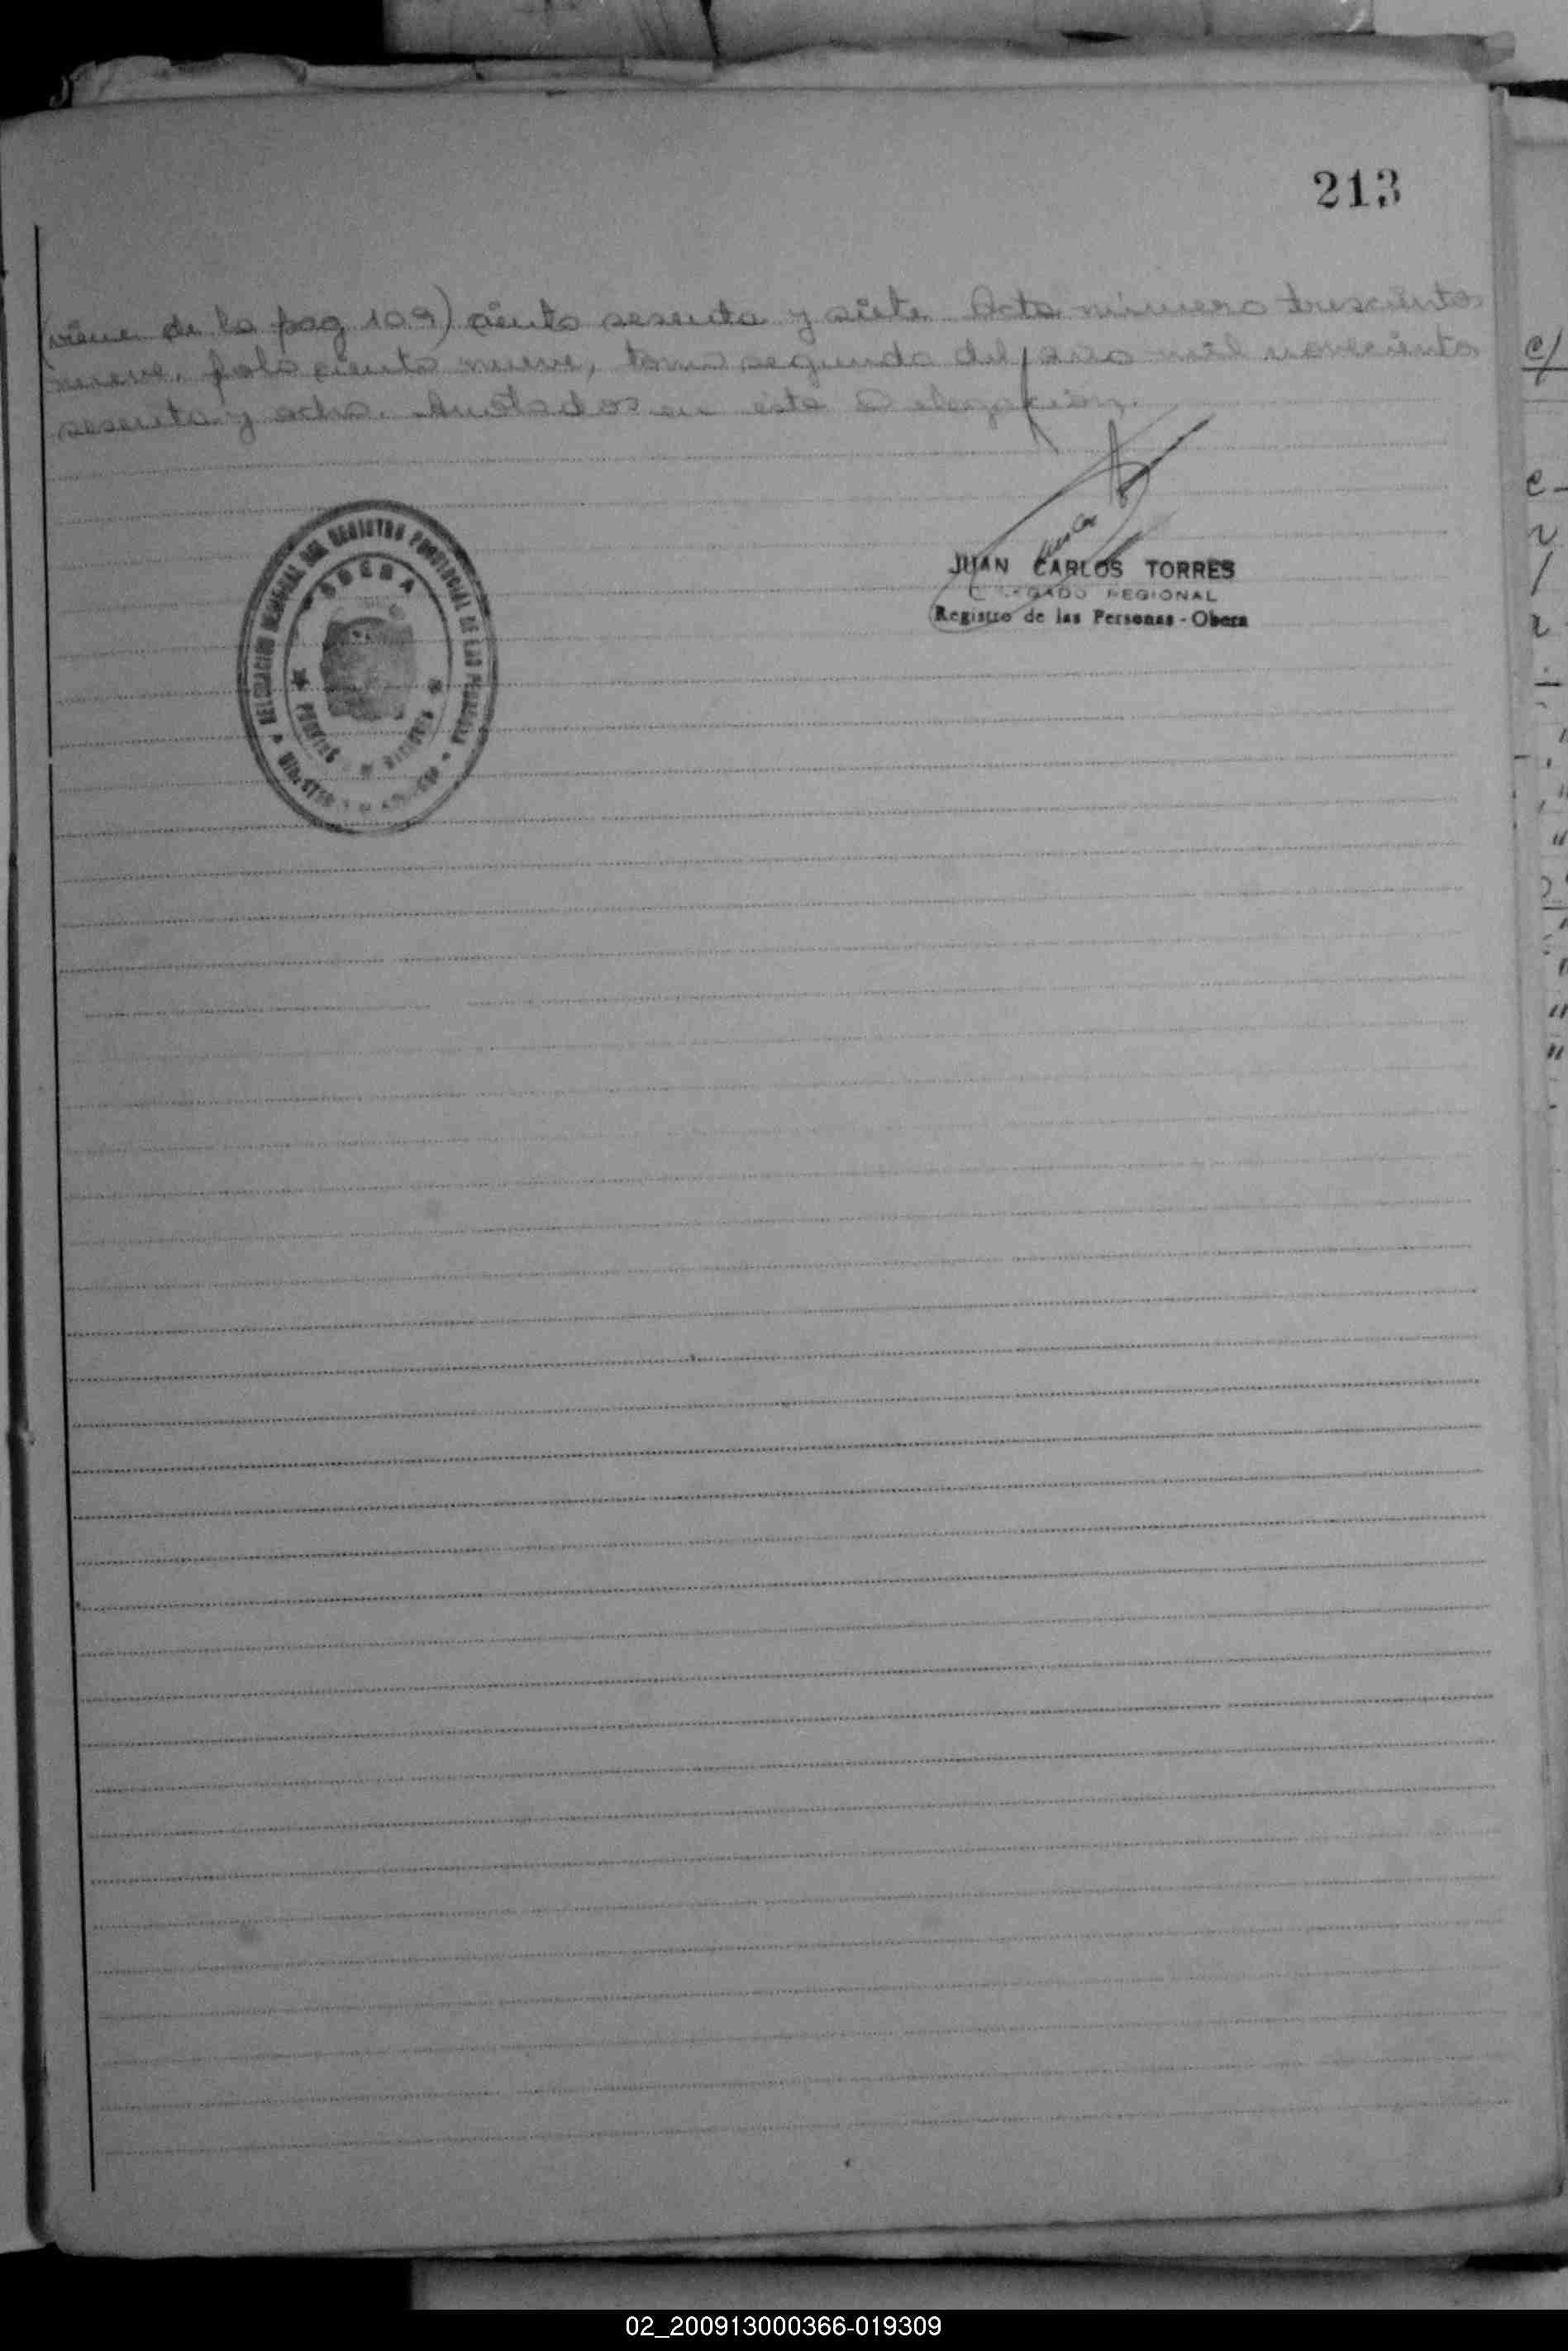 213
(viene de la pag 109) ciento sesenta y siete. Acta número trescientos
nueve, folio ciento nueve, tomo segundo del año mil novecientos
sesenta y ocho. Anotados en esta Delegación.
JUAN CARLOS TORRES
DELEGADO REGIONAL
Registro de las Personas - Obera
DELEGACION REGIONAL DEL REGISTRO PROVINCIAL DE LAS PERSONAS
OBERA
02_200913000366-019309